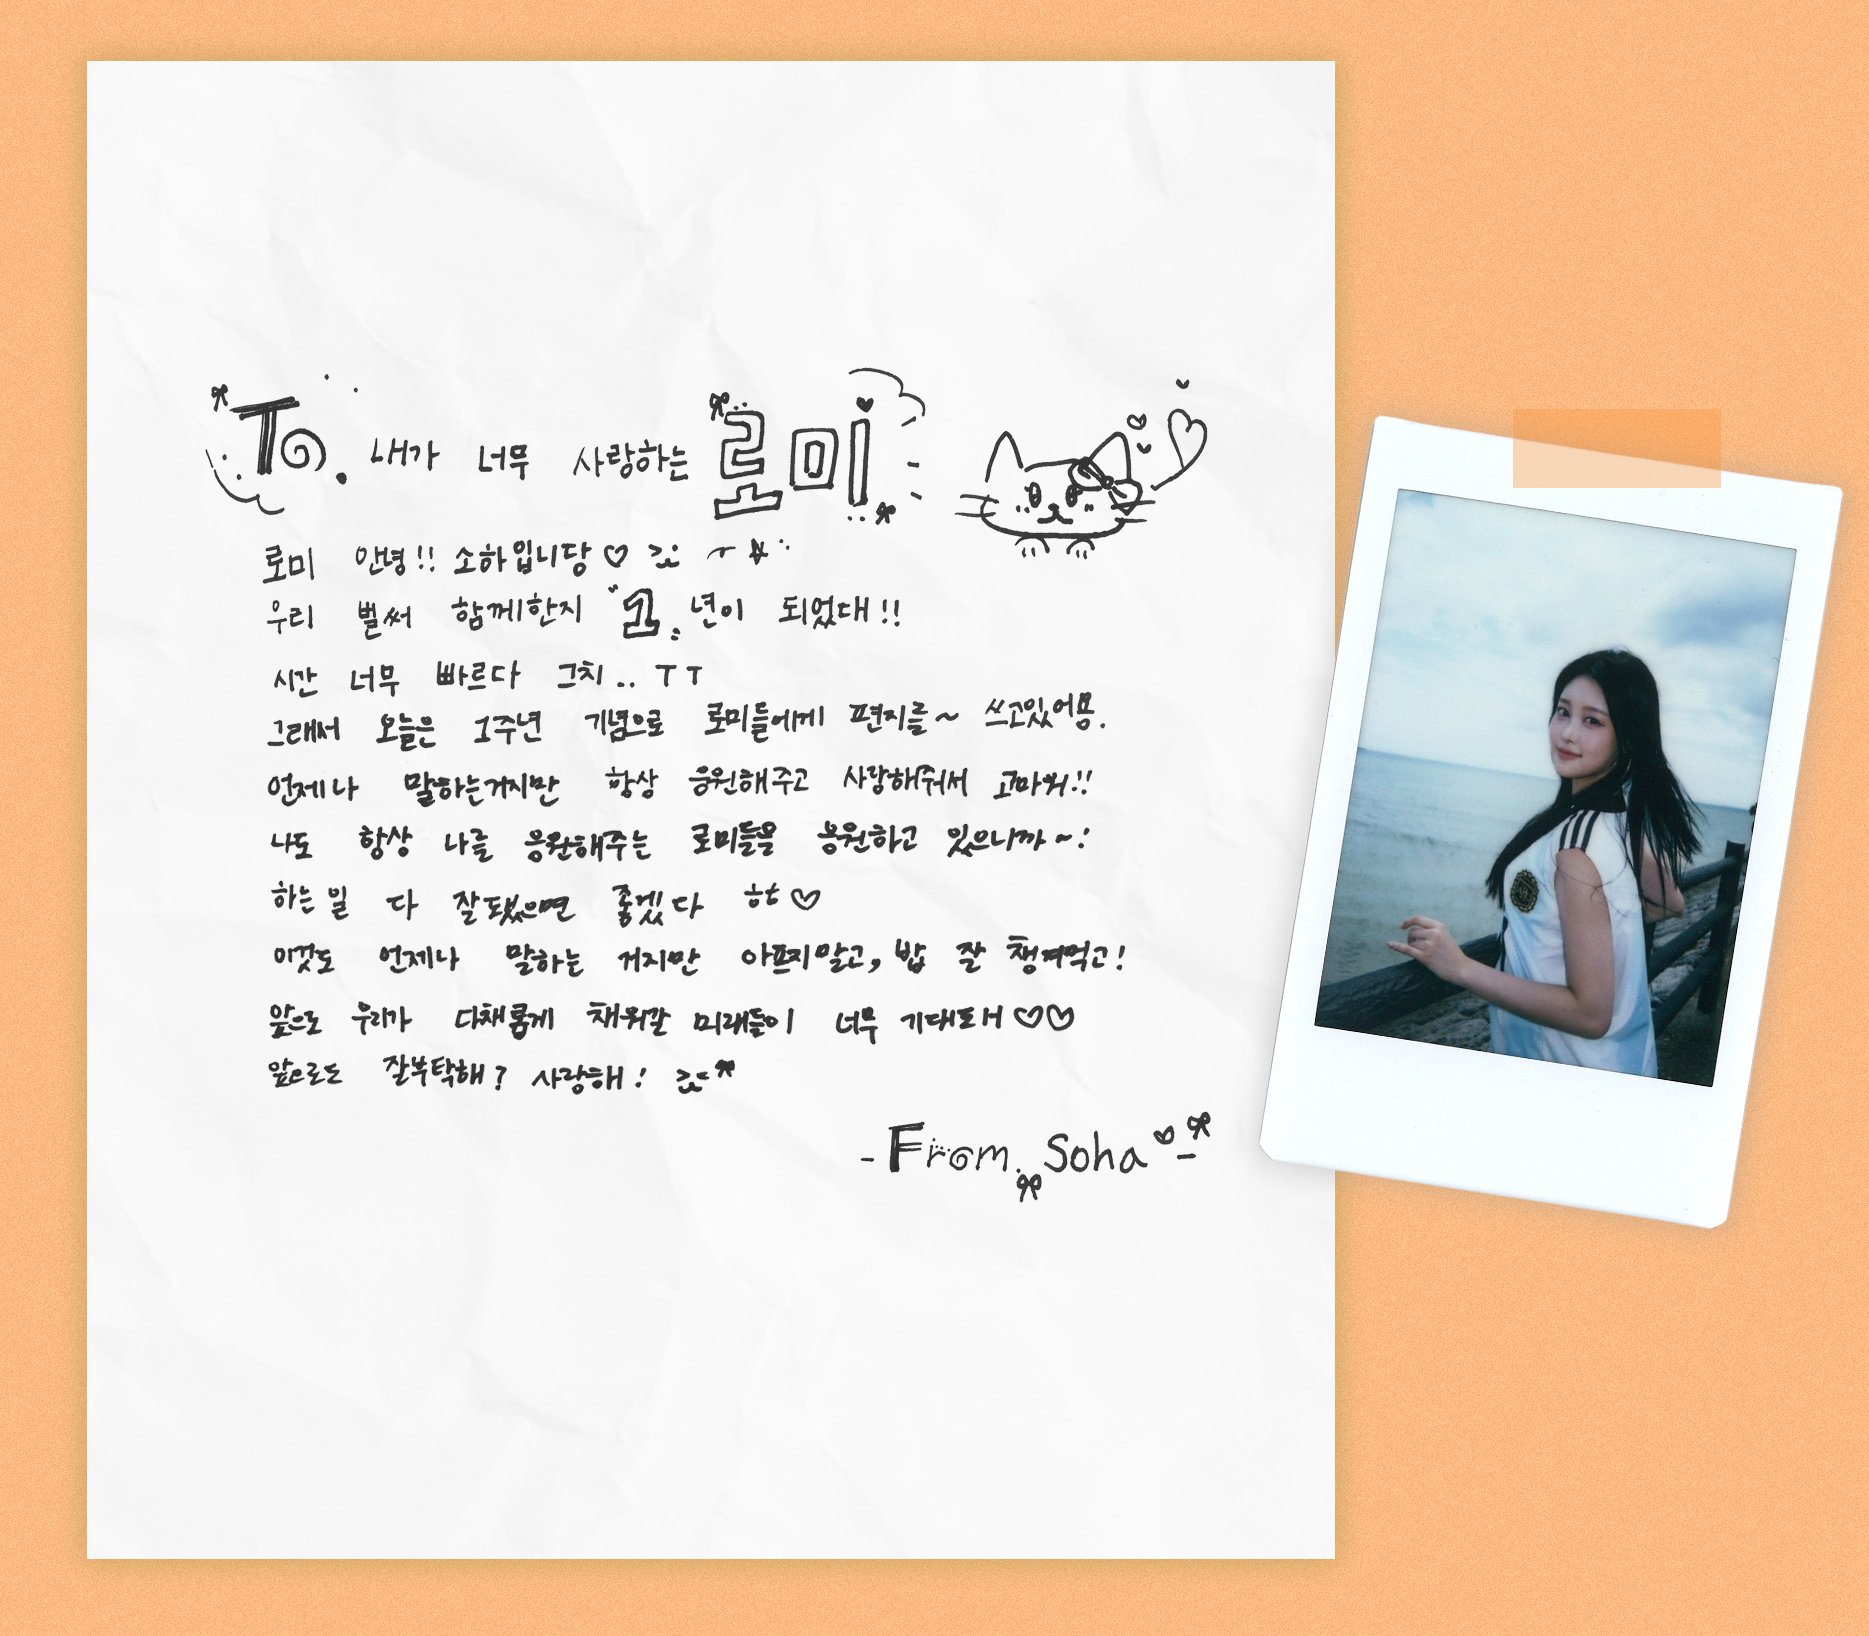 To. 내가 너무 사랑하는 로미
로미 안녕!! 소하입니당♡
우리 벌써 함께한지 1년이 되었대!!
시간 너무 빠르다 그치.. ㅜㅜ
그래서 오늘은 1주년 기념으로 로미들에게 편지를~ 쓰고있어용.
언제나 말하는거지만 항상 응원해주고 사랑해줘서 고마워!!
나도 항상 나를 응원해주는 로미들을 응원하고 있으니까~!
하는 일 다 잘됐으면 좋겠다 ㅎㅎ♡
이것도 언제나 말하는 거지만 아프지말고, 밥 잘 챙겨먹고!
앞으로 우리가 다채롭게 채워갈 미래들이 너무 기대돼♡♡
앞으로도 잘부탁해? 사랑해!
- From. Soha♡ -